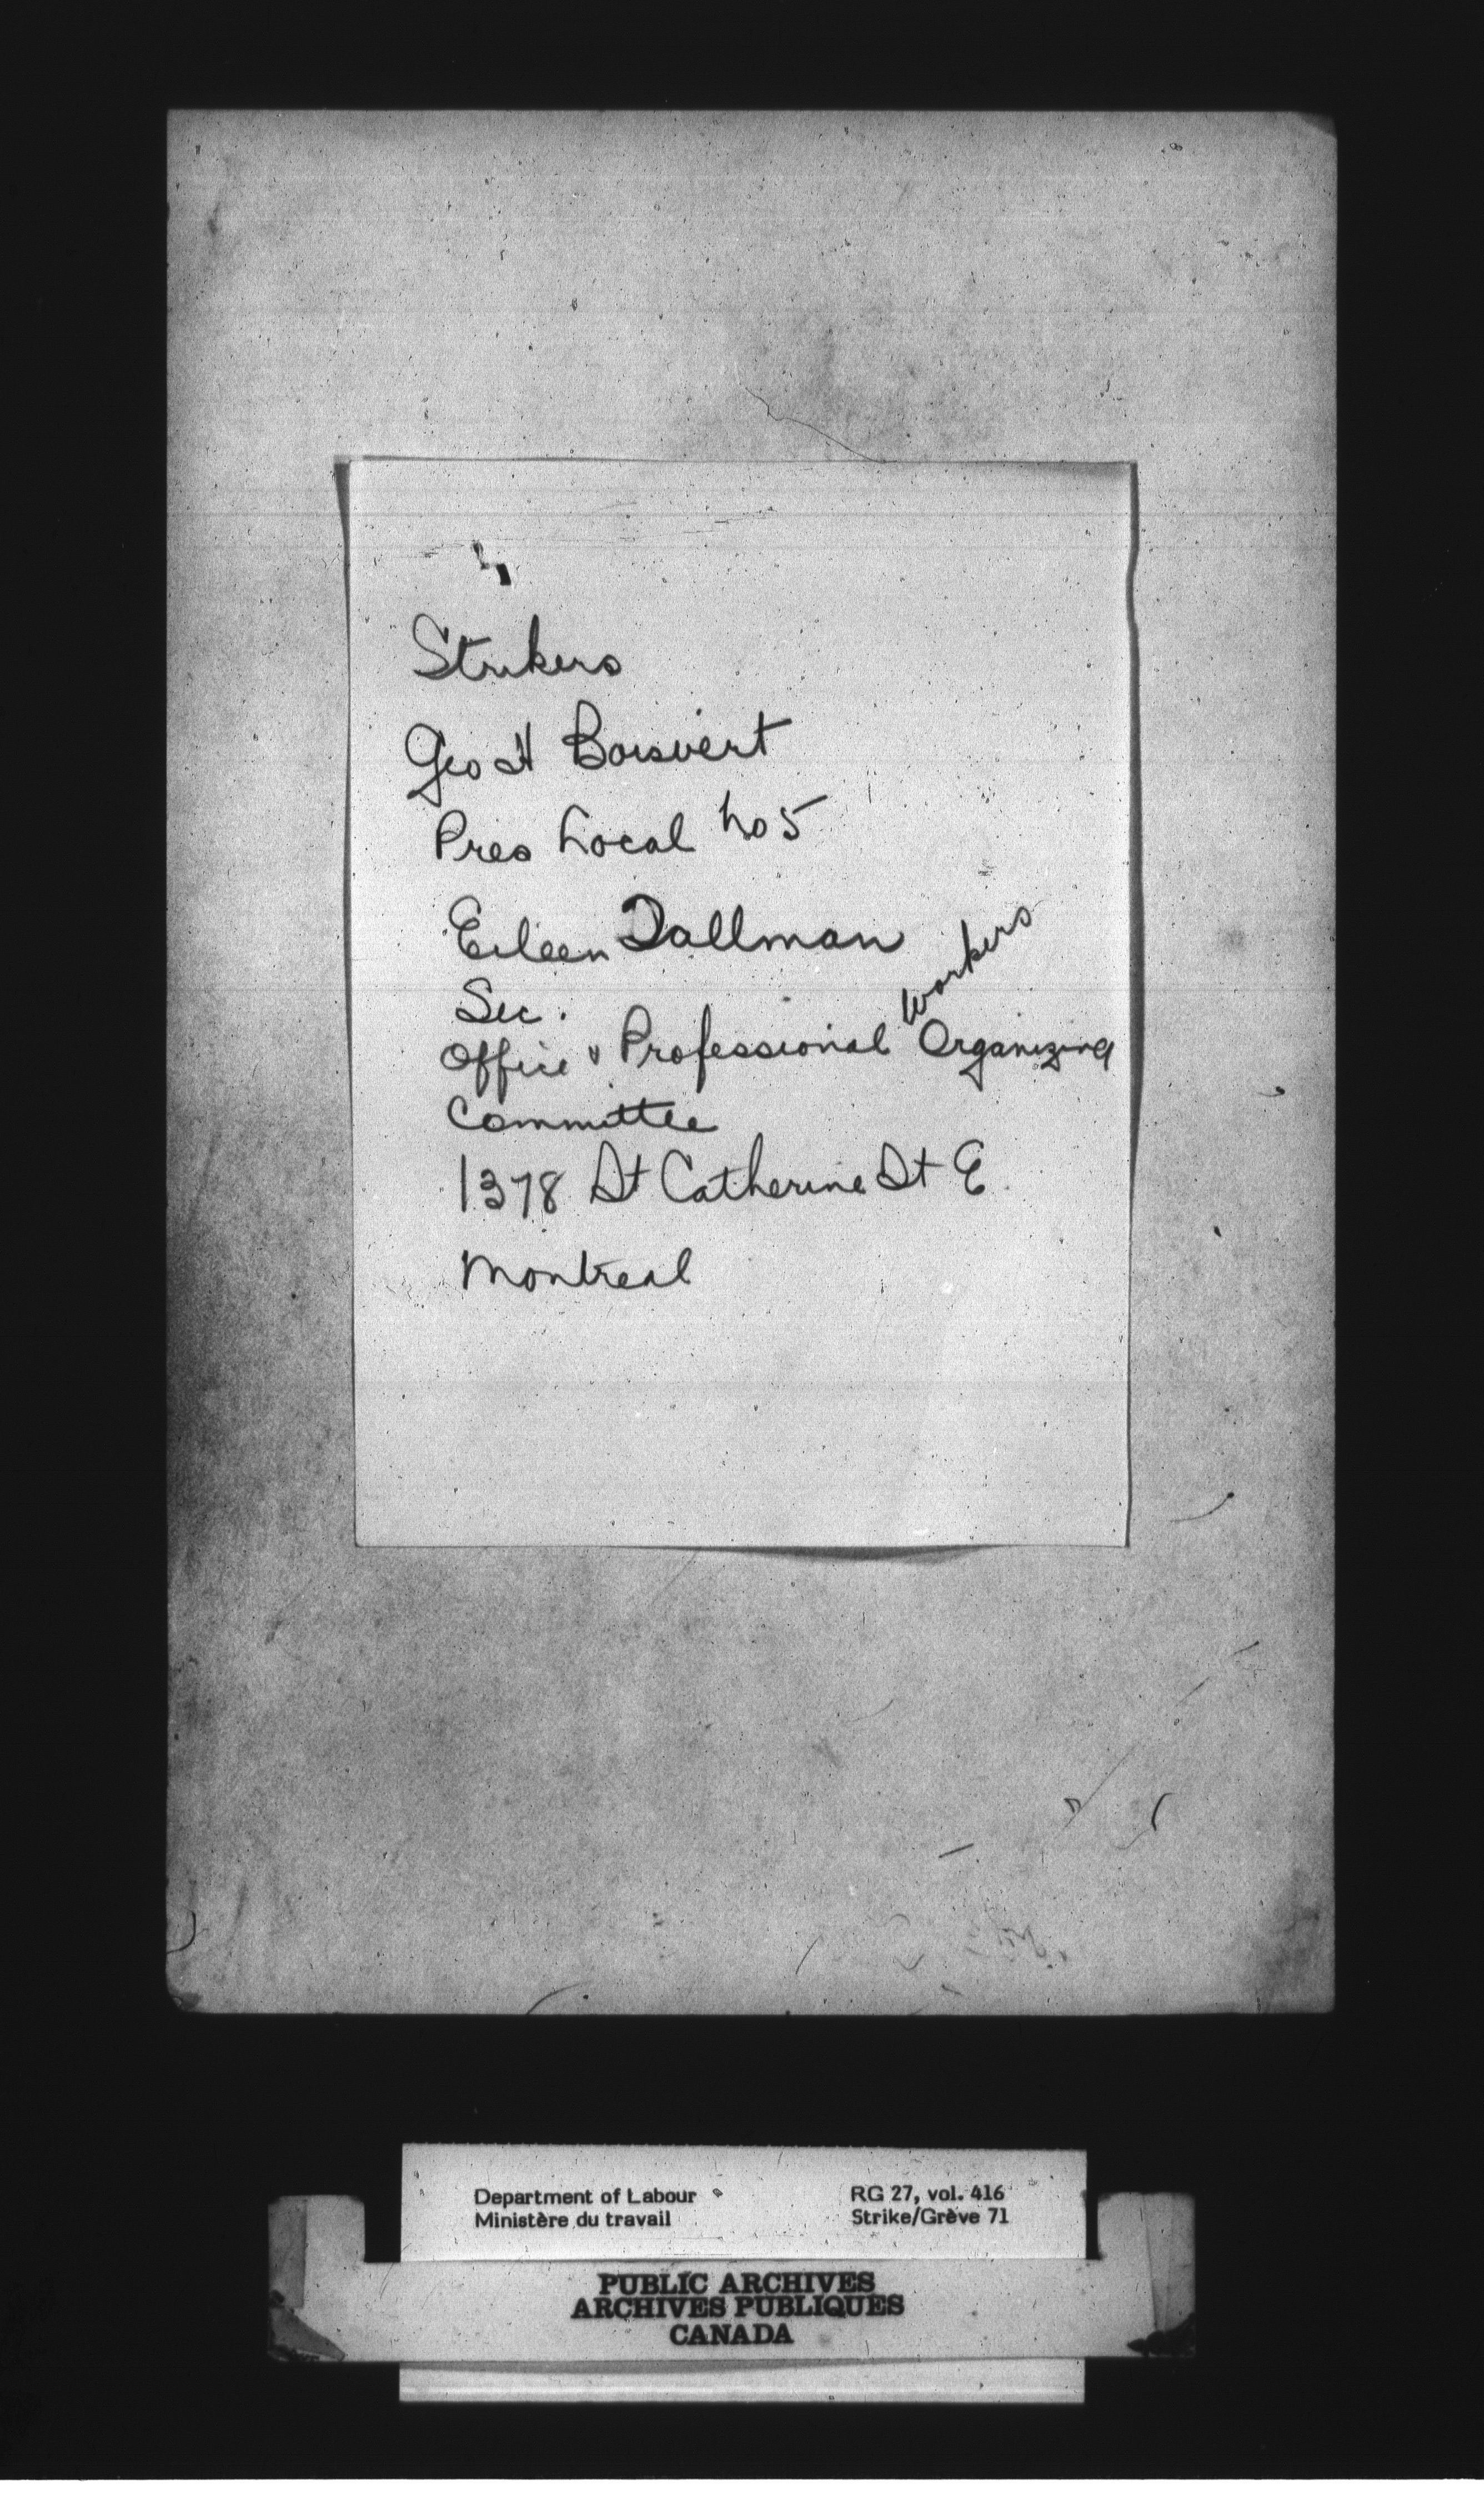 Strikers
Geo H Boisvert
Pres Local No 5
Eileen Tallman
Sec.
Office & Professional Workers Organizing
Committee
1378 St Catherine St E
Montreal
Department of Labour
Ministère du travail
RG 27, vol. 416
Strike/Grève 71
PUBLIC ARCHIVES
ARCHIVES PUBLIQUES
CANADA